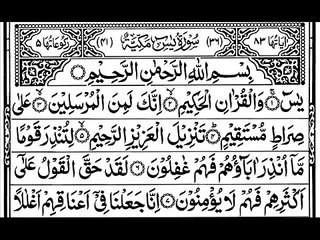 اٰیَاتُهَا ۸۳ (۳۶) سُوْرَةُ يٰسٓ مَكِّيَّةٌ (۴۱) رُكُوْعَاتُهَا ۵
بِسْمِ اللّٰهِ الرَّحْمٰنِ الرَّحِيْمِ
يٰسٓ ۝ وَالْقُرْاٰنِ الْحَكِيْمِ ۝ اِنَّكَ لَمِنَ الْمُرْسَلِيْنَ ۝ عَلٰى
صِرَاطٍ مُّسْتَقِيْمٍ ۝ تَنْزِيْلَ الْعَزِيْزِ الرَّحِيْمِ ۝ لِتُنْذِرَ قَوْمًا
مَّاۤ اُنْذِرَ اٰبَآؤُهُمْ فَهُمْ غٰفِلُوْنَ ۝ لَقَدْ حَقَّ الْقَوْلُ عَلٰۤى
اَكْثَرِهِمْ فَهُمْ لَا يُؤْمِنُوْنَ ۝ اِنَّا جَعَلْنَا فِيْۤ اَعْنَاقِهِمْ اَغْلٰلًا